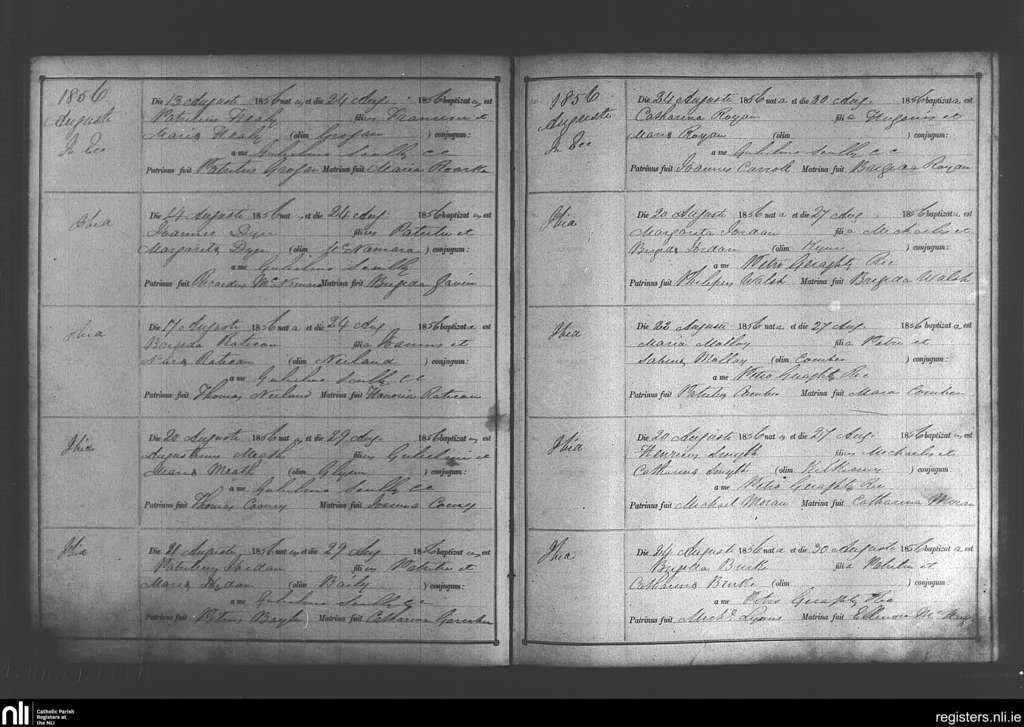 1856
Augusti
Die 13 Augusti 1856 nat us et die 24 Aug. 1856 baptizat us est
Patritius Healy filius Francisci et
Maria Healy (olim Grogan ) conjugum:
a me Gulielmo Scully CC
Patrinus fuit Patritius Grogan Matrina fuit Maria Roarke
Die 14 Augusti 1856 nat et die 24 Aug 1856 baptizat us est
Joannes Dyer filius Patritii et
Margarita Dyer (olim McNamara ) conjugum:
a me Gulielmo Scully
Patrinus fuit Ricardus McNamara Matrina fuit Brigida Gavin
Die 17 Augusti 1856 nat a et die 24 Aug 1856 baptizat a est
Brigida Ratican filia Joannis et
Ratican (olim Neiland ) conjugum:
a me Gulielmo Scully CC
Patrinus fuit Thomas Neiland Matrina fuit Honoria Ratican
Ibia
Die 20 Augusti 1856 nat us et die 29 Aug. 1856 baptizat us est
Augustinus Meath filius Gulielmi et
Maria Meath (olim Glynn ) conjugum:
a me Gulielmo Scully CC
Patrinus fuit Thomas Coony Matrina fuit Joanna Coony
Ibia
Die 21 Augusti 1856 nat us et die 29 Aug 1856 baptizat us est
Patritius Jordan filius Patritii et
Maria Jordan (olim Baily ) conjugum:
a me Gulielmo Scully CC
Patrinus fuit Petrus Matrina fuit Catharina
1856
Augusti
Die 24 Augusti 1856 nat a et die 30 Aug 1856 baptizat a est
Catharina Royan filia Hugonis et
Maria Royan (olim ) conjugum:
a me Gulielmo Scully CC
Patrinus fuit Joannes Carroll Matrina fuit Brigida Royan
Ibia
Die 20 Augusti 1856 nat a et die 27 Aug 1856 baptizat a est
Margarita Jordan filia Michaelis et
Brigida Jordan (olim ) conjugum:
a me Petro Geraghty
Patrinus fuit Philipus Walsh Matrina fuit Brigida Walsh
Ibia
Die 22 Augusti 1856 nat a et die 27 Aug 1856 baptizat a est
Maria Malloy filia Petri et
Sabina Malloy (olim Comber ) conjugum:
a me Petro Geraghty
Patrinus fuit Patritius Comber Matrina fuit Maria Comber
Ibia
Die 20 Augusti 1856 nat us et die 27 Aug. 1856 baptizat us est
Henricus Smyth filius Michaelis et
Catharina Smyth (olim ) conjugum:
a me Petro Geraghty
Patrinus fuit Michael Moran Matrina fuit Catharina Moran
Ibia
Die 24 Augusti 1856 nat a et die 30 Augusti 1856 baptizat a est
Brigida Burke filia Patritii et
Catharina Burke (olim ) conjugum:
a me Petro Geraghty
Patrinus fuit Michl. Lyons Matrina fuit Ellenora
nli Catholic Parish
Registers at
the NLI
registers.nli.ie